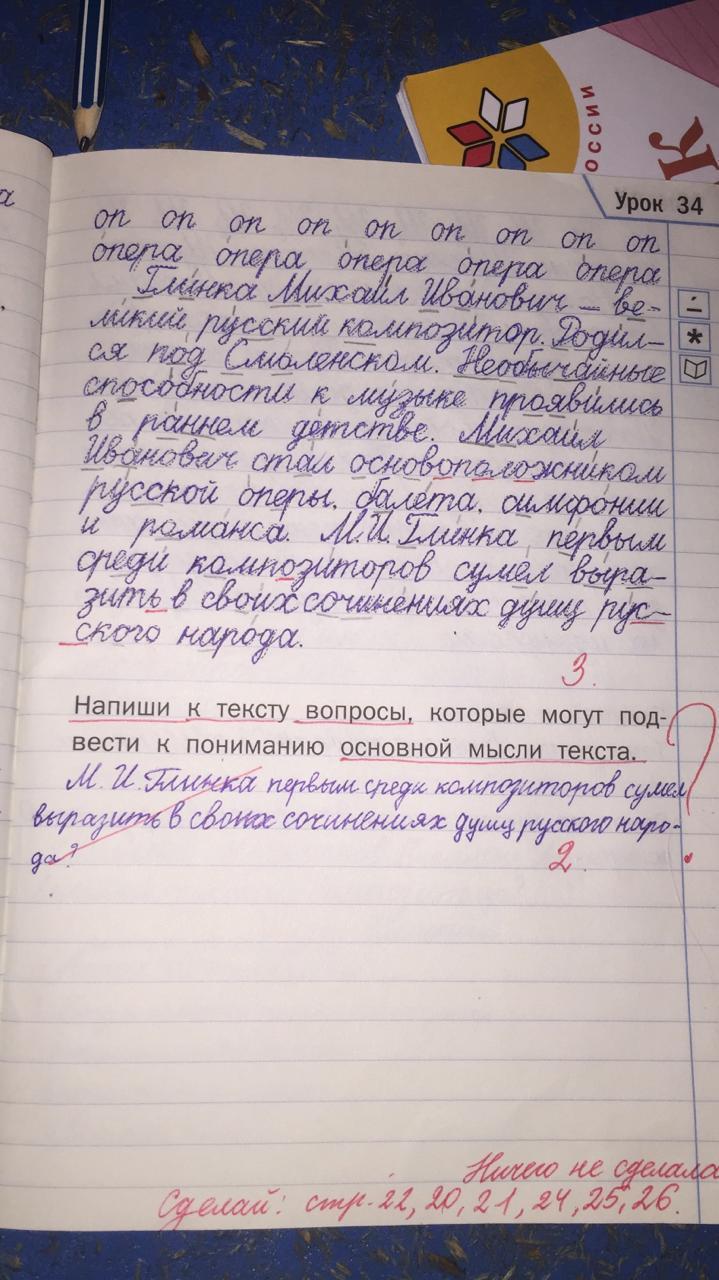 оссии
К
а
Урок 34
оп оп оп оп оп оп оп оп оп
опера опера опера опера опера
Глинка Михаил Иванович – ве-
ликий русский композитор. Родил-
ся под Смоленском. Необычайные
способности к музыке проявились
в раннем детстве. Михаил
Иванович стал основоположником
русской оперы, балета, симфонии
и романса. М.И.Глинка первым
среди композиторов сумел выра-
зить в своих сочинениях душу рус-
ского народа.
3.
Напиши к тексту вопросы, которые могут под-
вести к пониманию основной мысли текста.
?
М. И. Глинка первым среди композиторов сумел
выразить в своих сочинениях душу русского наро-
да?
2.
Ничего не сделала
Сделай: стр. 22, 20, 21, 24, 25, 26.